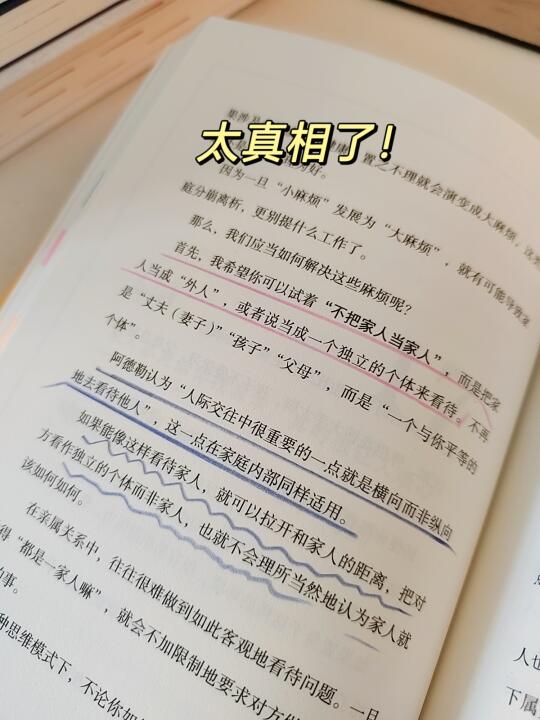 太真相了！
健康
置之不理就会演变成大麻烦，这
为好。
因为一旦“小麻烦”发展为“大麻烦”，就有可能导致家
庭分崩离析，更别提什么工作了。
那么，我们应当如何解决这些麻烦呢？
首先，我希望你可以试着“不把家人当家人”，而是把家
人当成“外人”，或者说当成一个独立的个体来看待。不再
是“丈夫（妻子）”“孩子”“父母”，而是“一个与你平等的
个体”。
阿德勒认为“人际交往中很重要的一点就是横向而非纵向
地去看待他人”，这一点在家庭内部同样适用。
如果能像这样看待家人，就可以拉开和家人的距离，把对
方看作独立的个体而非家人，也就不会理所当然地认为家人就
该如何如何。
在亲属关系中，往往很难做到如此客观地看待问题。一旦
得“都是一家人嘛”，就会不加限制地要求对方
事。
种思维模式下，不论你如
人也
下属